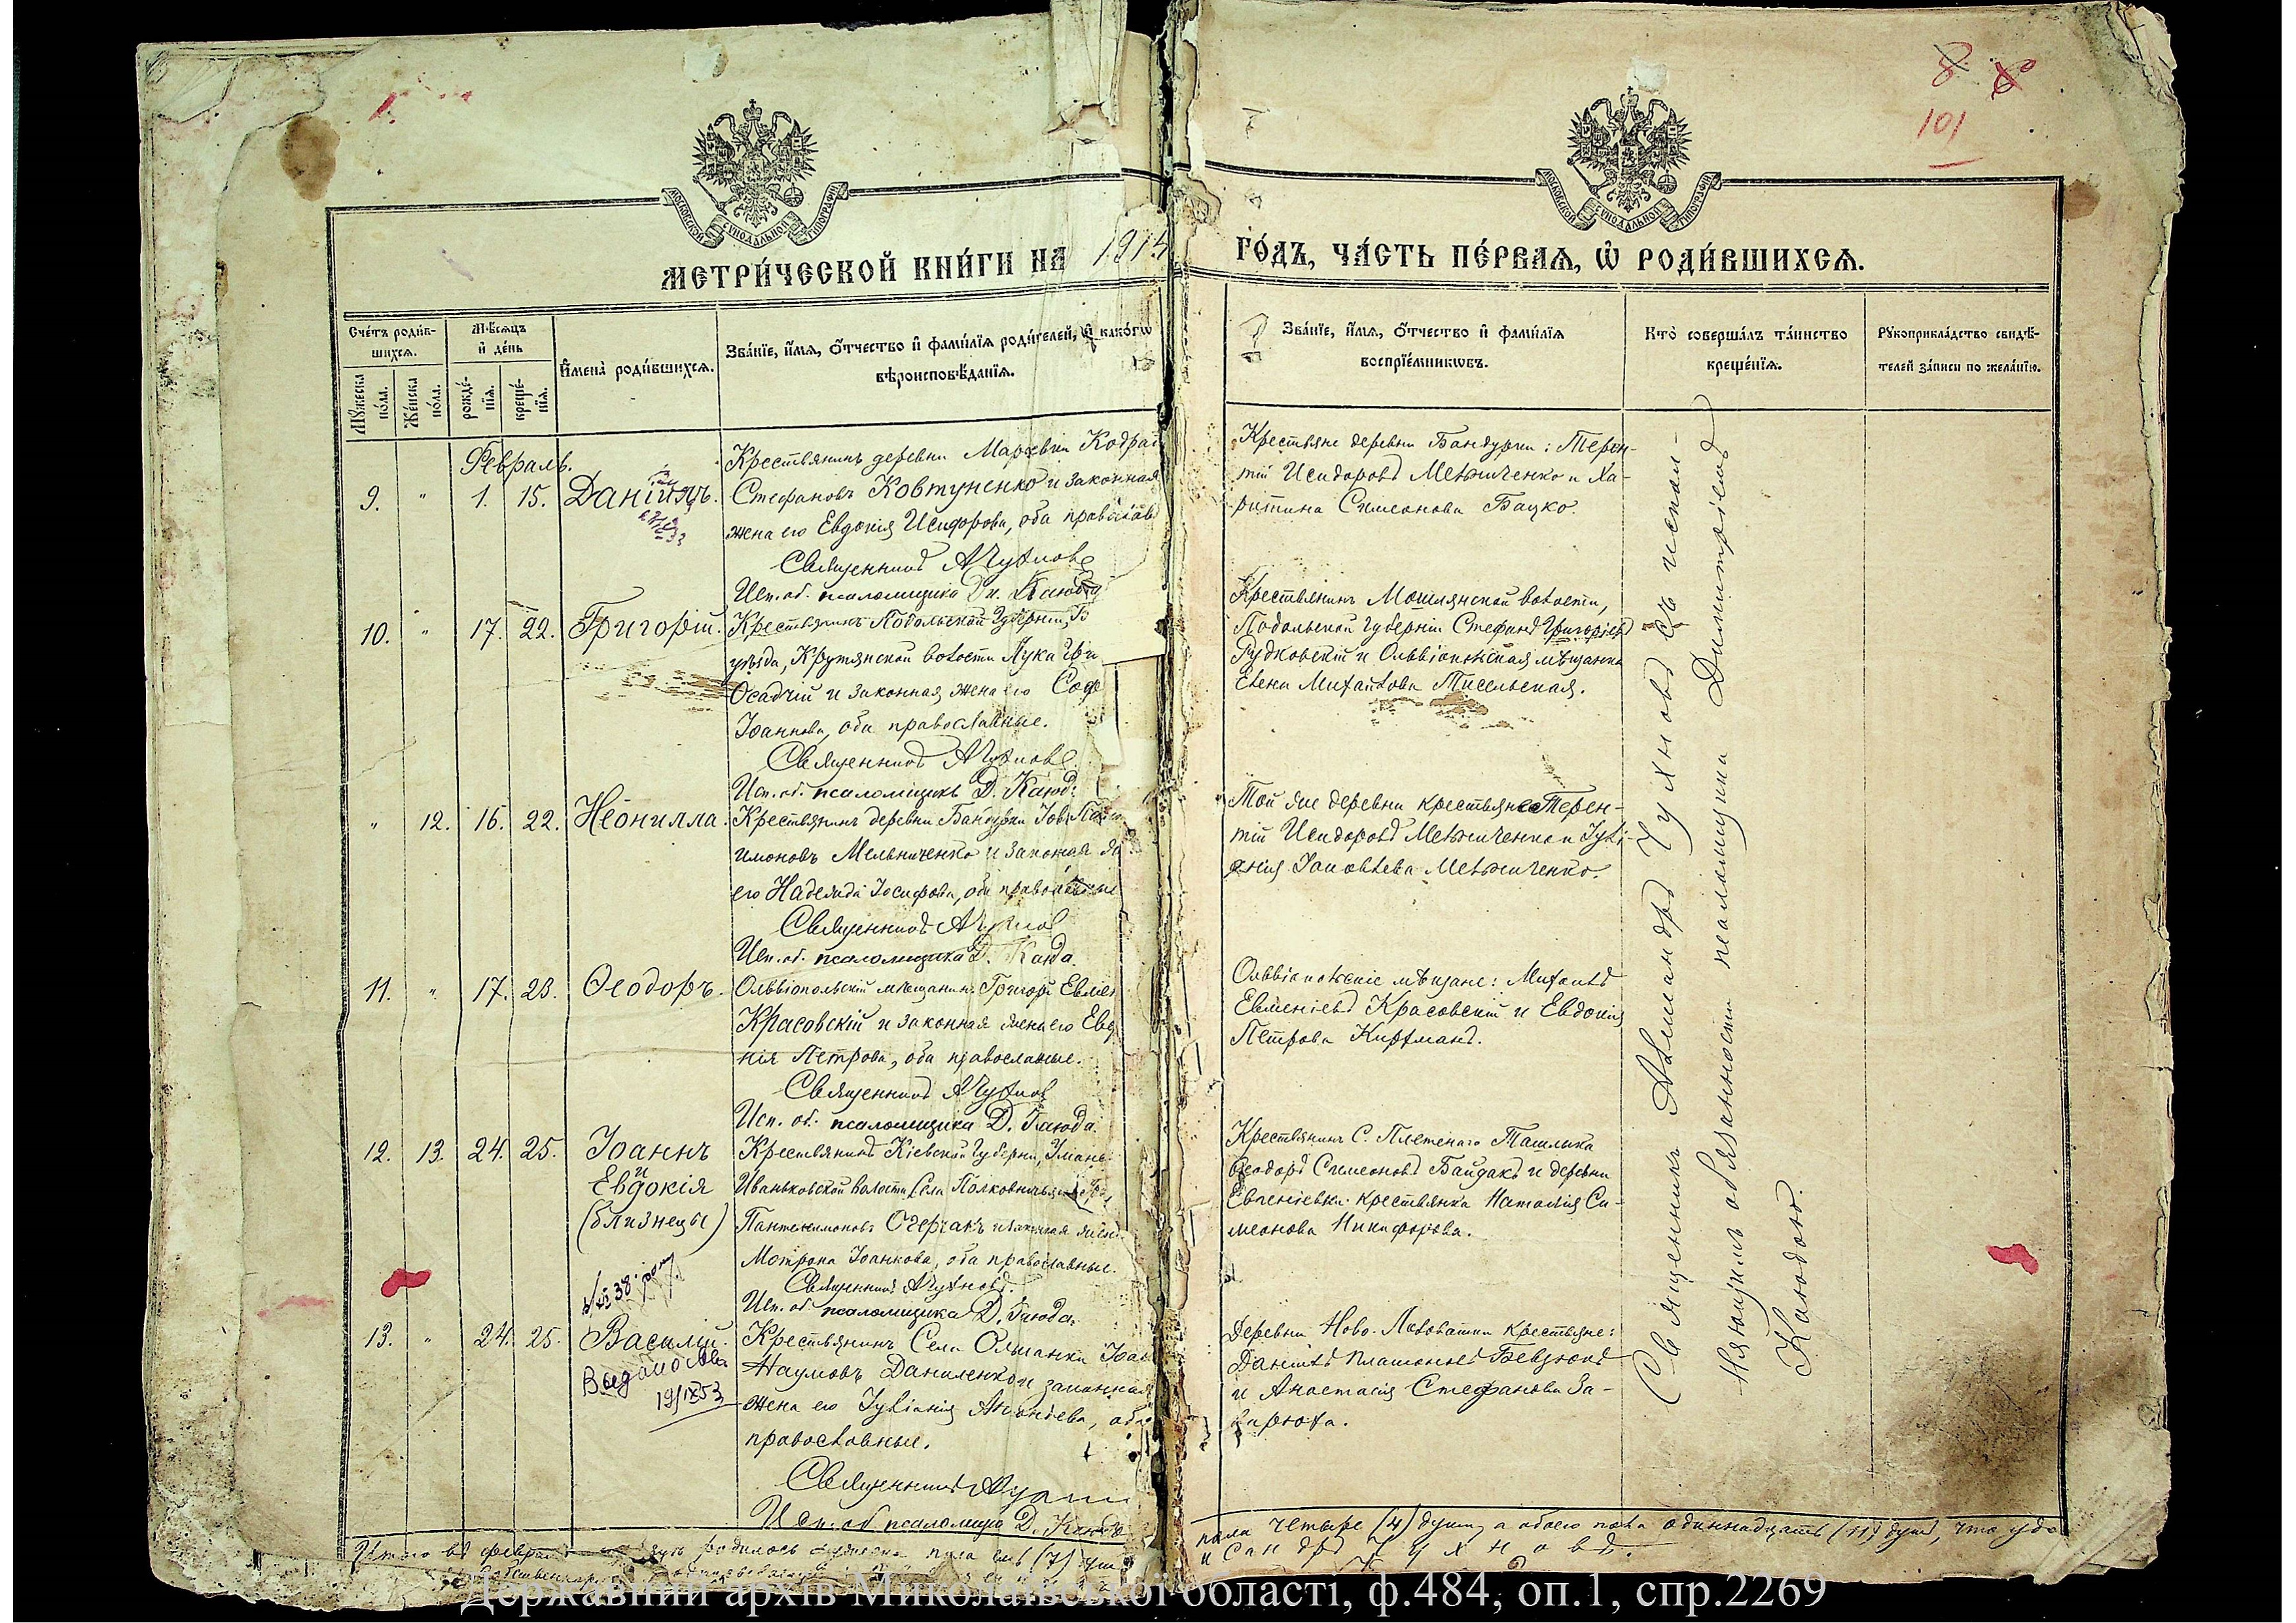 8
101
МОСКОВСКОЙ СУНОДАЛЬНОЙ ТИПОГРАФІИ
МОСКОВСКОЙ СУНОДАЛЬНОЙ ТИПОГРАФІИ
МЕТРИ́ЧЕСКОЙ КНИ́ГИ НА 191
ГО́ДЪ, ЧА́СТЬ ПЕ́РВАЯ, Ѡ РОДИ́ВШИХСЯ.
Сче́тъ роди́в-
шихся.
Мѣ́сяцъ
и де́нь
Му́жеска по́ла.
Же́нска по́ла.
рожде́-нія.
креще́-нія.
Имена̀ роди́вшихся.
Зва́ніе, и́мя, о́тчество и фами́лія роди́телей, и како́гѡ
вѣроисповѣ́данія.
Зва́ніе, и́мя, о́тчество и фами́лія
воспріе́мникѡвъ.
Кто̀ соверша́лъ та́инство
креще́нія.
Рукоприкла́дство свидѣ́-
телей за́писи по жела́нію.
Февраль.
9. " 1. 15. Даніилъ.
Крестьянинъ деревни Маріевки Кодрат
Стефановъ Ковтуненко и законная
жена его Евдокія Исидорова, оба православ
Священникъ А Чухновъ
Исп. об. псаломщика Д. Каюда
Крестьяне деревни Бандурки: Терен-
тій Исидоровъ Мельниченко и Ха-
ритина Симеонова Бацко.
10. " 17. 22. Григорій.
Крестьянинъ Подольской Губерніи, Б
уѣзда, Крутянской волости Лука Гри
Осадчій и законная жена его Соф
Іоаннова, оба православные.
Священникъ А Чухновъ
Исп. об. псаломщикъ Д. Каюд
Крестьянинъ Мошлянской волости,
Подольской губерніи Стефанъ Григорьев
Рудковскій и Ольвіопольская мѣщанка
Елена Михайлова Тисельская.
" 12. 16. 22. Неонилла.
Крестьянинъ деревни Бандурки Іовъ
имоновъ Мельниченко и законная
его Надежда Іосифова, оба православные
Священникъ А Чухнов
Исп. об. псаломщика Д. Каюда.
Той же деревни крестьяне Терен-
тій Исидоровъ Мельниченко и Іулі-
анія Іаковлева Мельниченко.
11. " 17. 23. Ѳеодоръ.
Ольвіопольскій мѣщанинъ Григорій Евмен
Красовскій и законная жена его Евд
кія Петрова, оба православные.
Священникъ А Чухнов
Исп. об. псаломщика Д. Каюда
Ольвіопольскіе мѣщане: Михаилъ
Евменіевъ Красовскій и Евдокія
Петрова Кирфманъ.
12. 13. 24. 25. Іоаннъ
и
Евдокія
(близнецы)
Крестьянинъ Кіевской Губерніи, Уман
Иваньковской волости, Села Полковничьяго
Пантелеимоновъ Очеръ и законная жена
Мотрона Іоаннова, оба православные.
Священникъ А Чухновъ.
Исп. об. псаломщика Д. Каюда.
Крестьянинъ С. Плетенаго Ташлыка
Ѳеодоръ Симеоновъ Байдакъ и деревни
Евгеніевки крестьянка Наталія Си-
меонова Никифорова.
13. " 24. 25. Василій.
19/IX53
Крестьянинъ Села Ольшанки Іоан
Наумовъ Даниленко и законная
жена его Іуліанія Антоніева, оба
православные.
Священникъ А
Исп. об псаломщ Д. Каюда
Деревни Ново-Павловки крестьяне:
Даніилъ Платоновъ Бевзюкъ
и Анастасія Стефанова За-
харюта.
Священникъ Александръ Чухновъ съ испол-
няющимъ обязанности псаломщика Димитріемъ
Каюдою.
Итого въ феврал родилось мужеска пола семь (7) душ
пола четыре (4) души, а обоего пола одиннадцать (11) душъ, что удо
сандръ Чухновъ.
Державний архів Миколаївської області, ф.484, оп.1, спр.2269